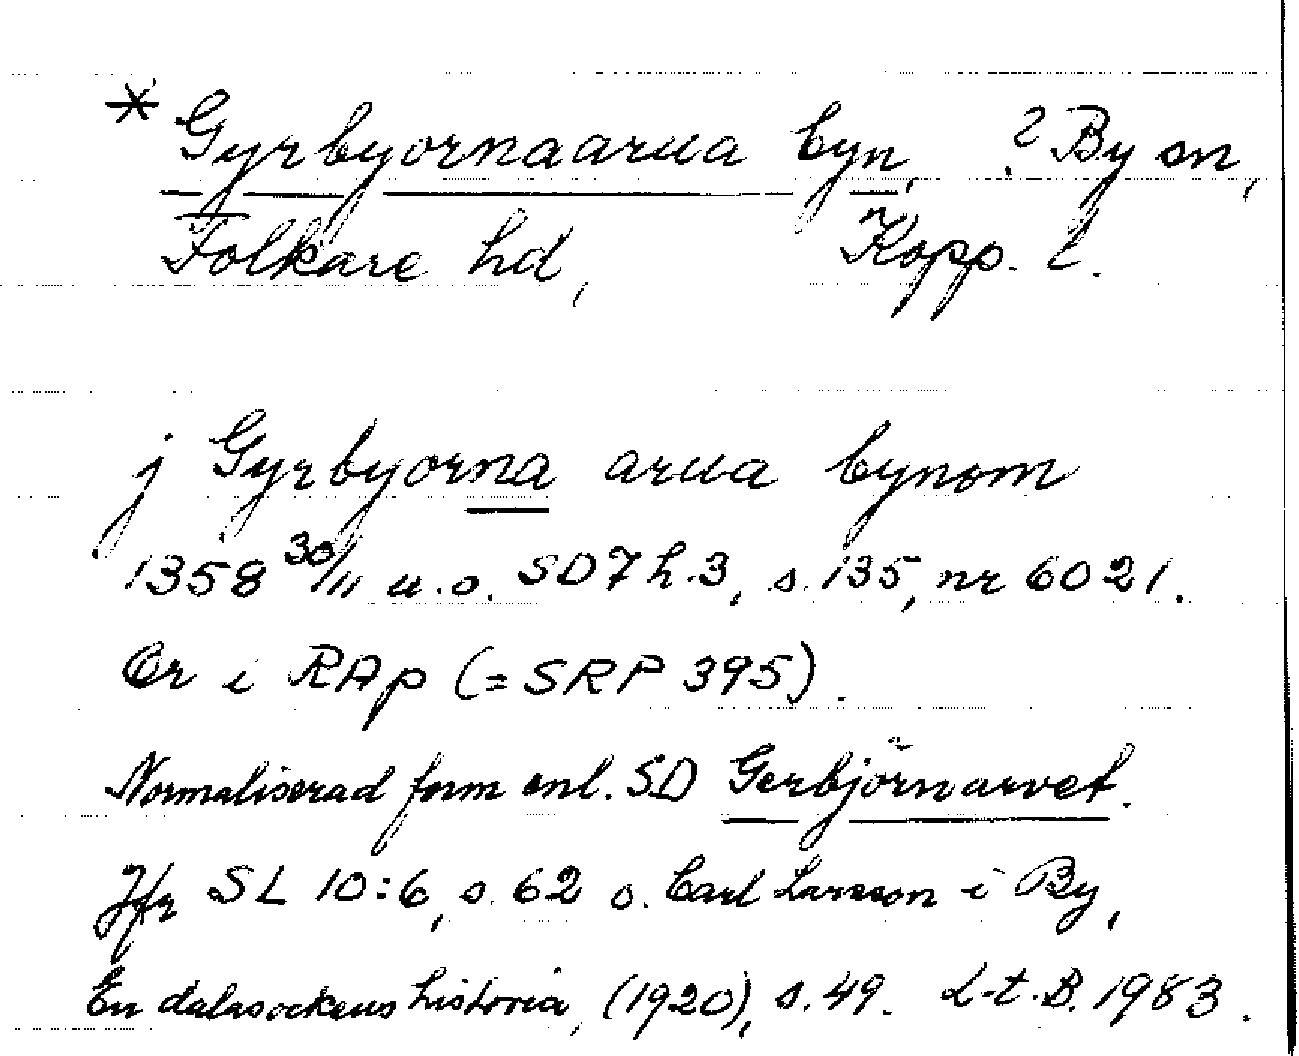 * Gyrbyornaarua byn, ? By sn,
Folkare hd, Kopp. l.
j Gyrbyorna arua bynom
1358 30/11 u.o. SD 7 h.3, s. 135, nr 6021.
Or i RAp (= SRP 395).
Normaliserad form enl. SD Gerbjörnarvet.
Jfr SL 10:6, s. 62 o. Carl Larsson i By,
En dalasockens historia, (1920), s. 49. L-t. B. 1983.